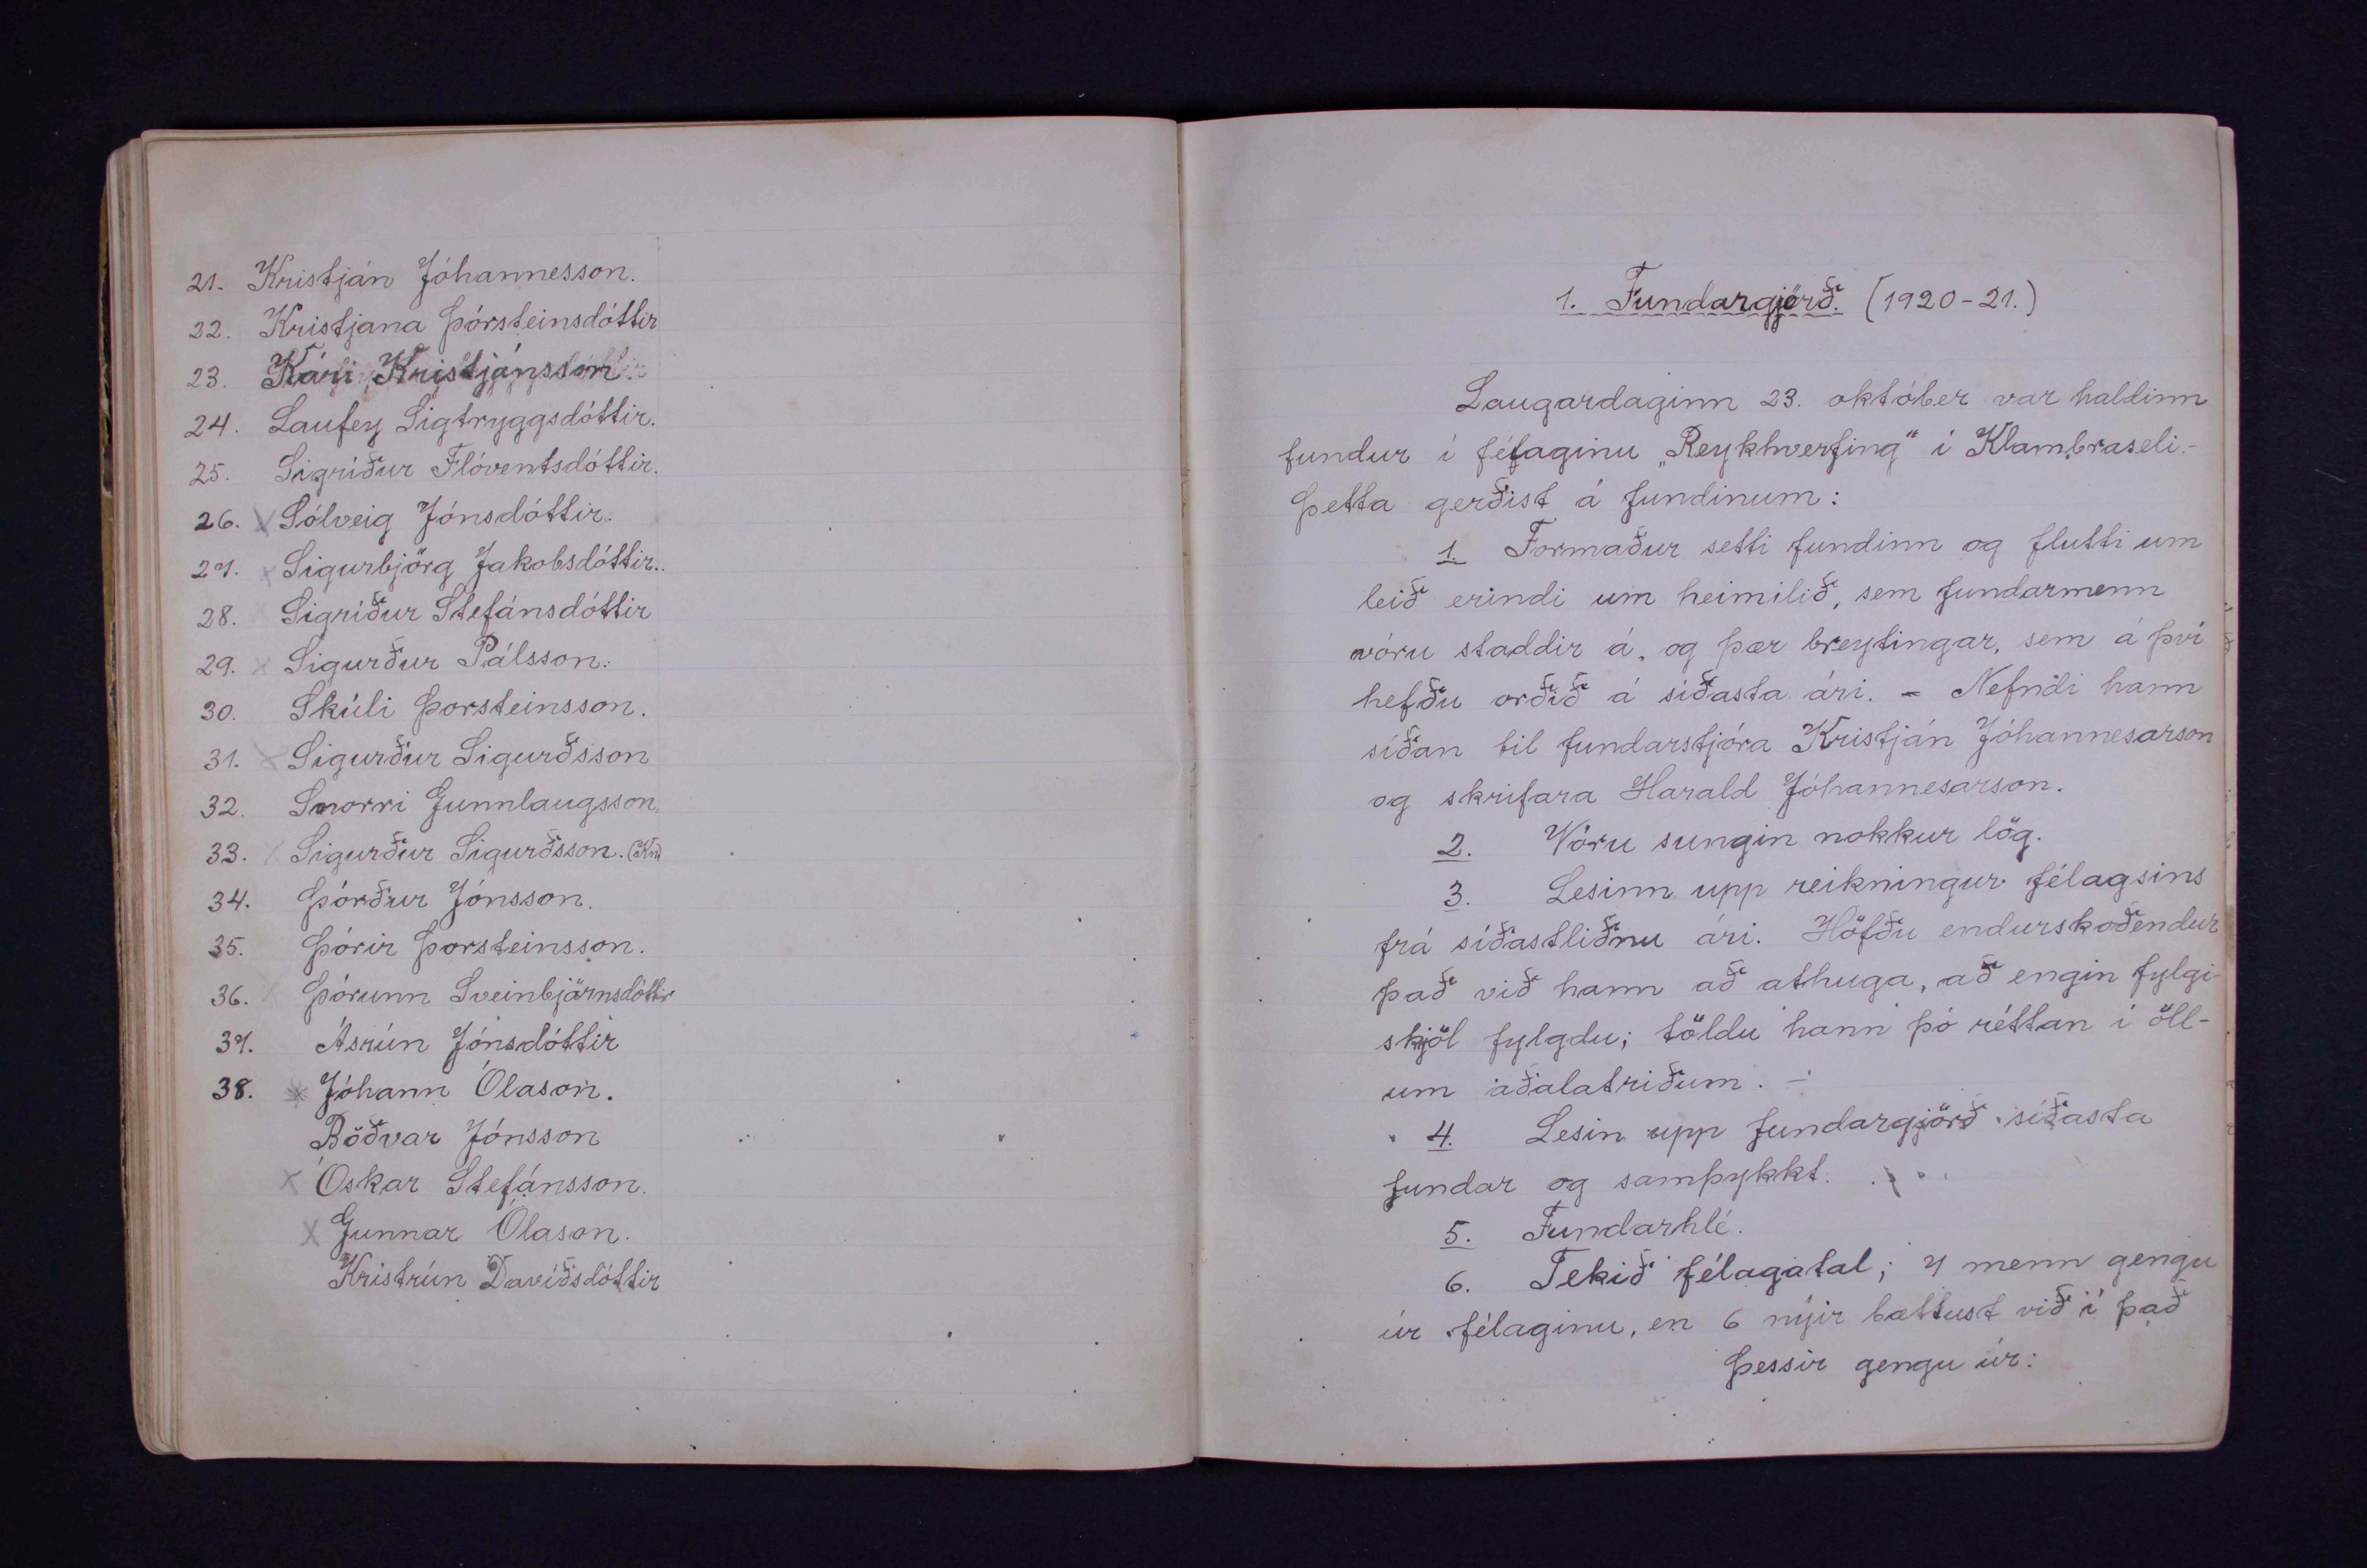 21. Kristján Jóhannesson.
22. Kristjana Þórsteinsdóttir
23. Kári Kristjánsson.
24. Laufey Sigtryggsdóttir.
25. Sigríður Flóventsdóttir.
26. x Sólveig Jónsdóttir.
27. x Sigurbjörg Jakobsdóttir..
28. Sigríður Stefánsdóttir
29. x Sigurður Pálsson.
30. Skúli Þorsteinsson.
31. x Sigurður Sigurðsson
32. Snorri Gunnlaugsson.
33. x Sigurður Sigurðsson. (Kn)
34. Þórður Jónsson.
35. Þórir Þorsteinsson.
36. x Þórunn Sveinbjärnsdóttir
37. Ásrún Jónsdóttir
38. x Jóhann Ólason.
Böðvar Jónsson
x Óskar Stefánsson.
x Gunnar Ólason.
Kristrún Davíðsdóttir
1. Fundargjörð. (1920-21.)
Laugardaginn 23. október var haldinn
fundur í félaginu „Reykhverfing" í Klambraseli.-
Þetta gerðist á fundinum:
1. Formaður setti fundinn og flutti um
leið erindi um heimilið, sem fundarmenn
vóru staddir á, og þær breytingar, sem á því
hefðu orðið á síðasta ári. - Nefndi hann
síðan til fundarstjóra Kristján Jóhannesarson
og skrifara Harald Jóhannesarson.
2. Vóru sungin nokkur lög.
3. Lesinn upp reikningur félagsins
frá síðastliðnu ári. Höfðu endurskoðendur
það við hann að athuga, að engin fylgi-
skjöl fylgdu; töldu hann þó réttan í öll-
um aðalatriðum. -
4. Lesin upp fundargjörð síðasta
fundar og samþykkt.
5. Fundarhlé.
6. Tekið félagatal; 7 menn gengu
úr félaginu, en 6 nýir bættust við í það
Þessir gengu úr: